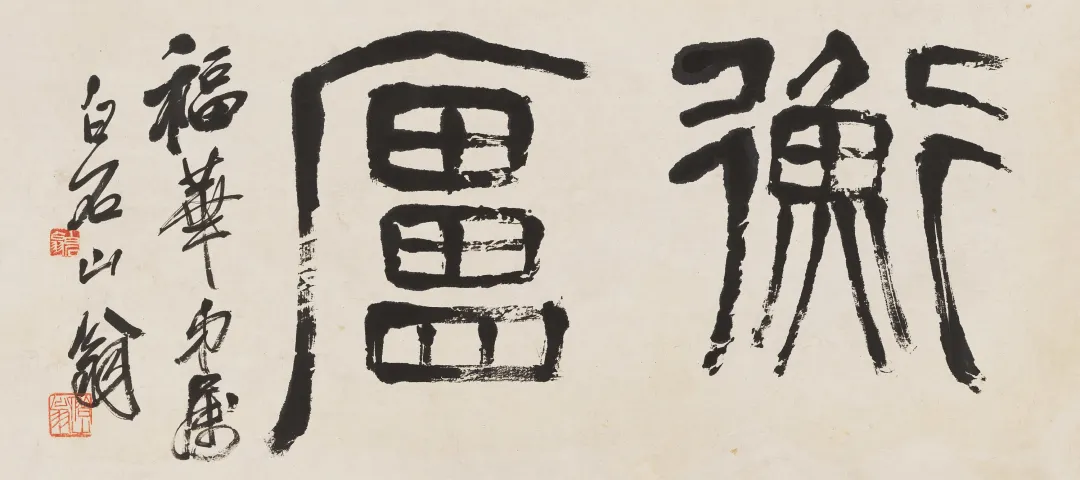 衡廬
福華弟屬
白石山翁